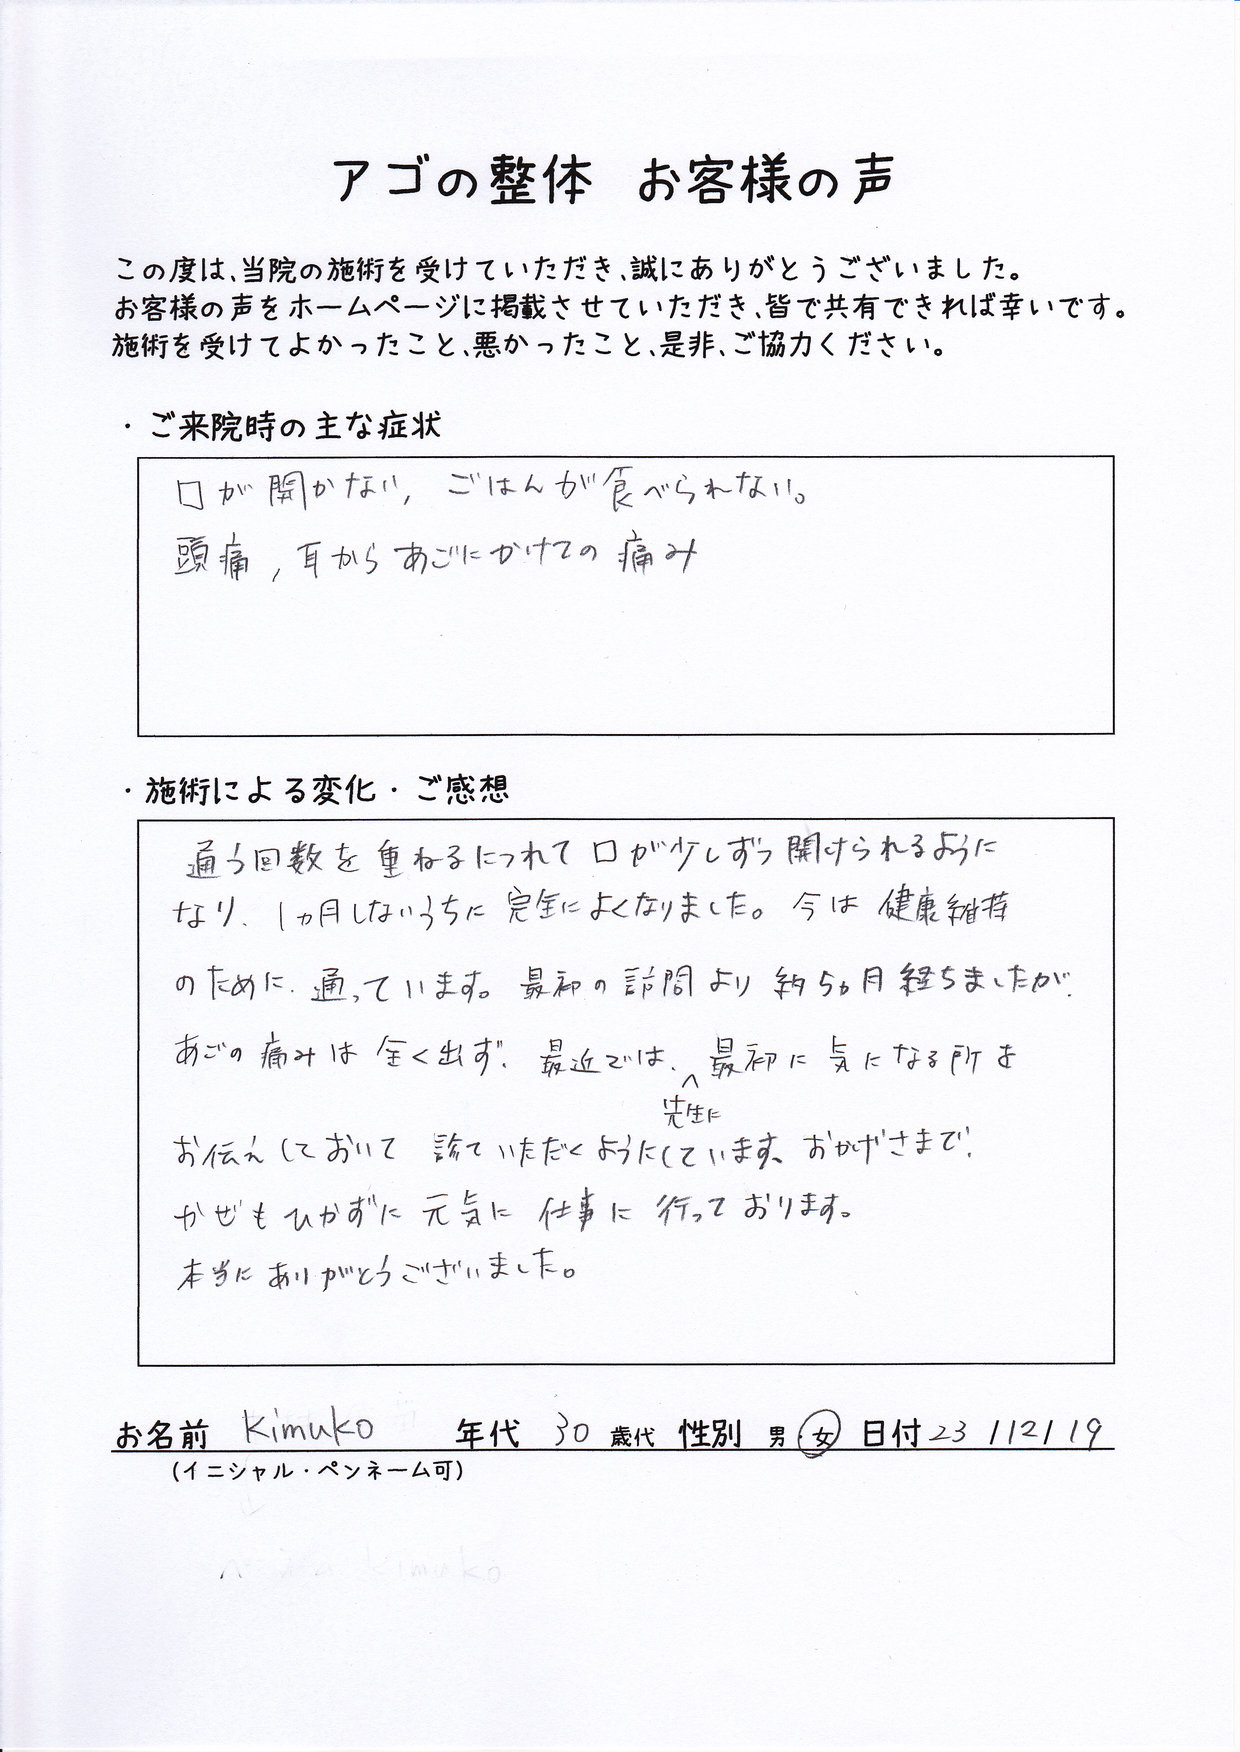 アゴの整体 お客様の声
この度は、当院の施術を受けていただき、誠にありがとうございました。
お客様の声をホームページに掲載させていただき、皆で共有できれば幸いです。
施術を受けてよかったこと、悪かったこと、是非、ご協力ください。
・ご来院時の主な症状
口が開かない, ごはんが食べられない。
頭痛, 耳からあごにかけての痛み
・施術による変化・ご感想
通う回数を重ねるにつれて口が少しずつ開けられるように
なり、1ヵ月しないうちに完全によくなりました。今は健康維持
のために、通っています。最初の訪問より約5ヵ月経ちましたが、
あごの痛みは全く出ず、最近では、最初に気になる所を
先生に
お伝えしておいて診ていただくようにしています。おかげさまで、
かぜもひかずに元気に仕事に行っております。
本当にありがとうございました。
お名前 Kimuko 年代 30 歳代 性別 男・女 日付 23/12/19
(イニシャル・ペンネーム可)
kimuko